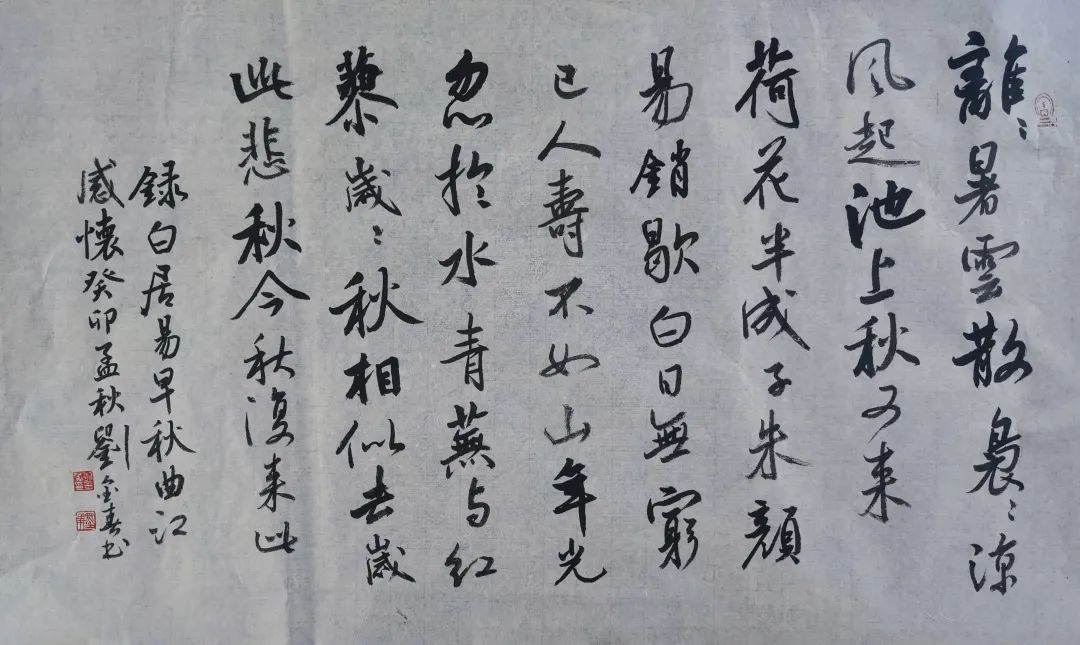 離〻暑雲散裊〻涼
風起池上秋又来
荷花半成子朱顔
易銷歇白日無窮
已人壽不如山年光
忽於水青蕪与红
蓼歲〻秋相似去歲
此悲秋今秋復来此
録白居易早秋曲江
感懷癸卯孟秋劉金春书